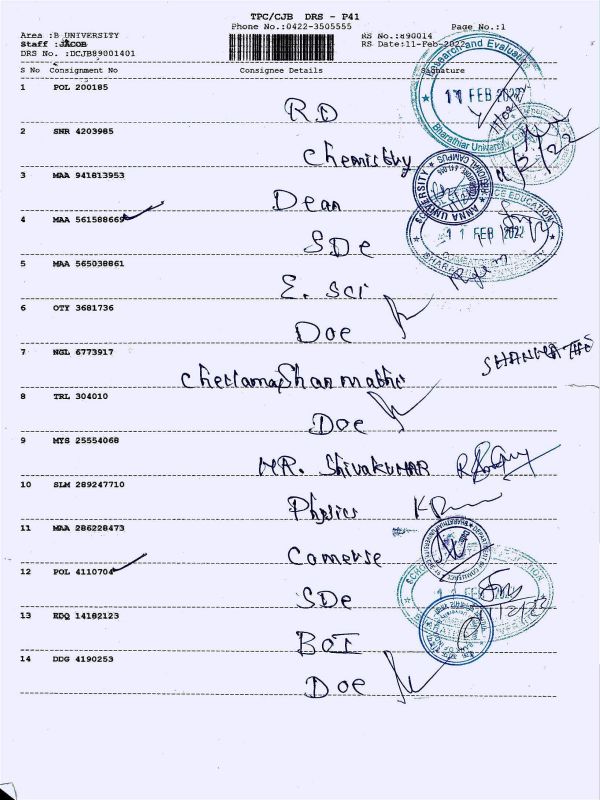 TPC/CJB DRS - P41
Phone No.:0422-3505555 Page No.:1
Area :B UNIVERSITY RS No.:890014
Staff :JACOB RS Date:11-Feb-2022
DRS No. :DCJB89001401
S No Consignment No Consignee Details Signature
1 POL 200185 RD
11 FEB 2022
2 SNR 4203985 Chemistry
3 MAA 941813953 Dean
ANNA UNIVERSITY
4 MAA 561588669 SDe
11 FEB 2022
5 MAA 565038861 E. Sci
6 OTY 3681736 Doe
7 NGL 6773917 Chellama Shanmathi
8 TRL 304010 Doe
9 MYS 25554068 MR. Shivakumar
10 SLM 289247710 Physics
11 MAA 286228473 Comerse
12 POL 4110704 SDe
13 KDQ 14182123 BOI
14 DDG 4190253 Doe